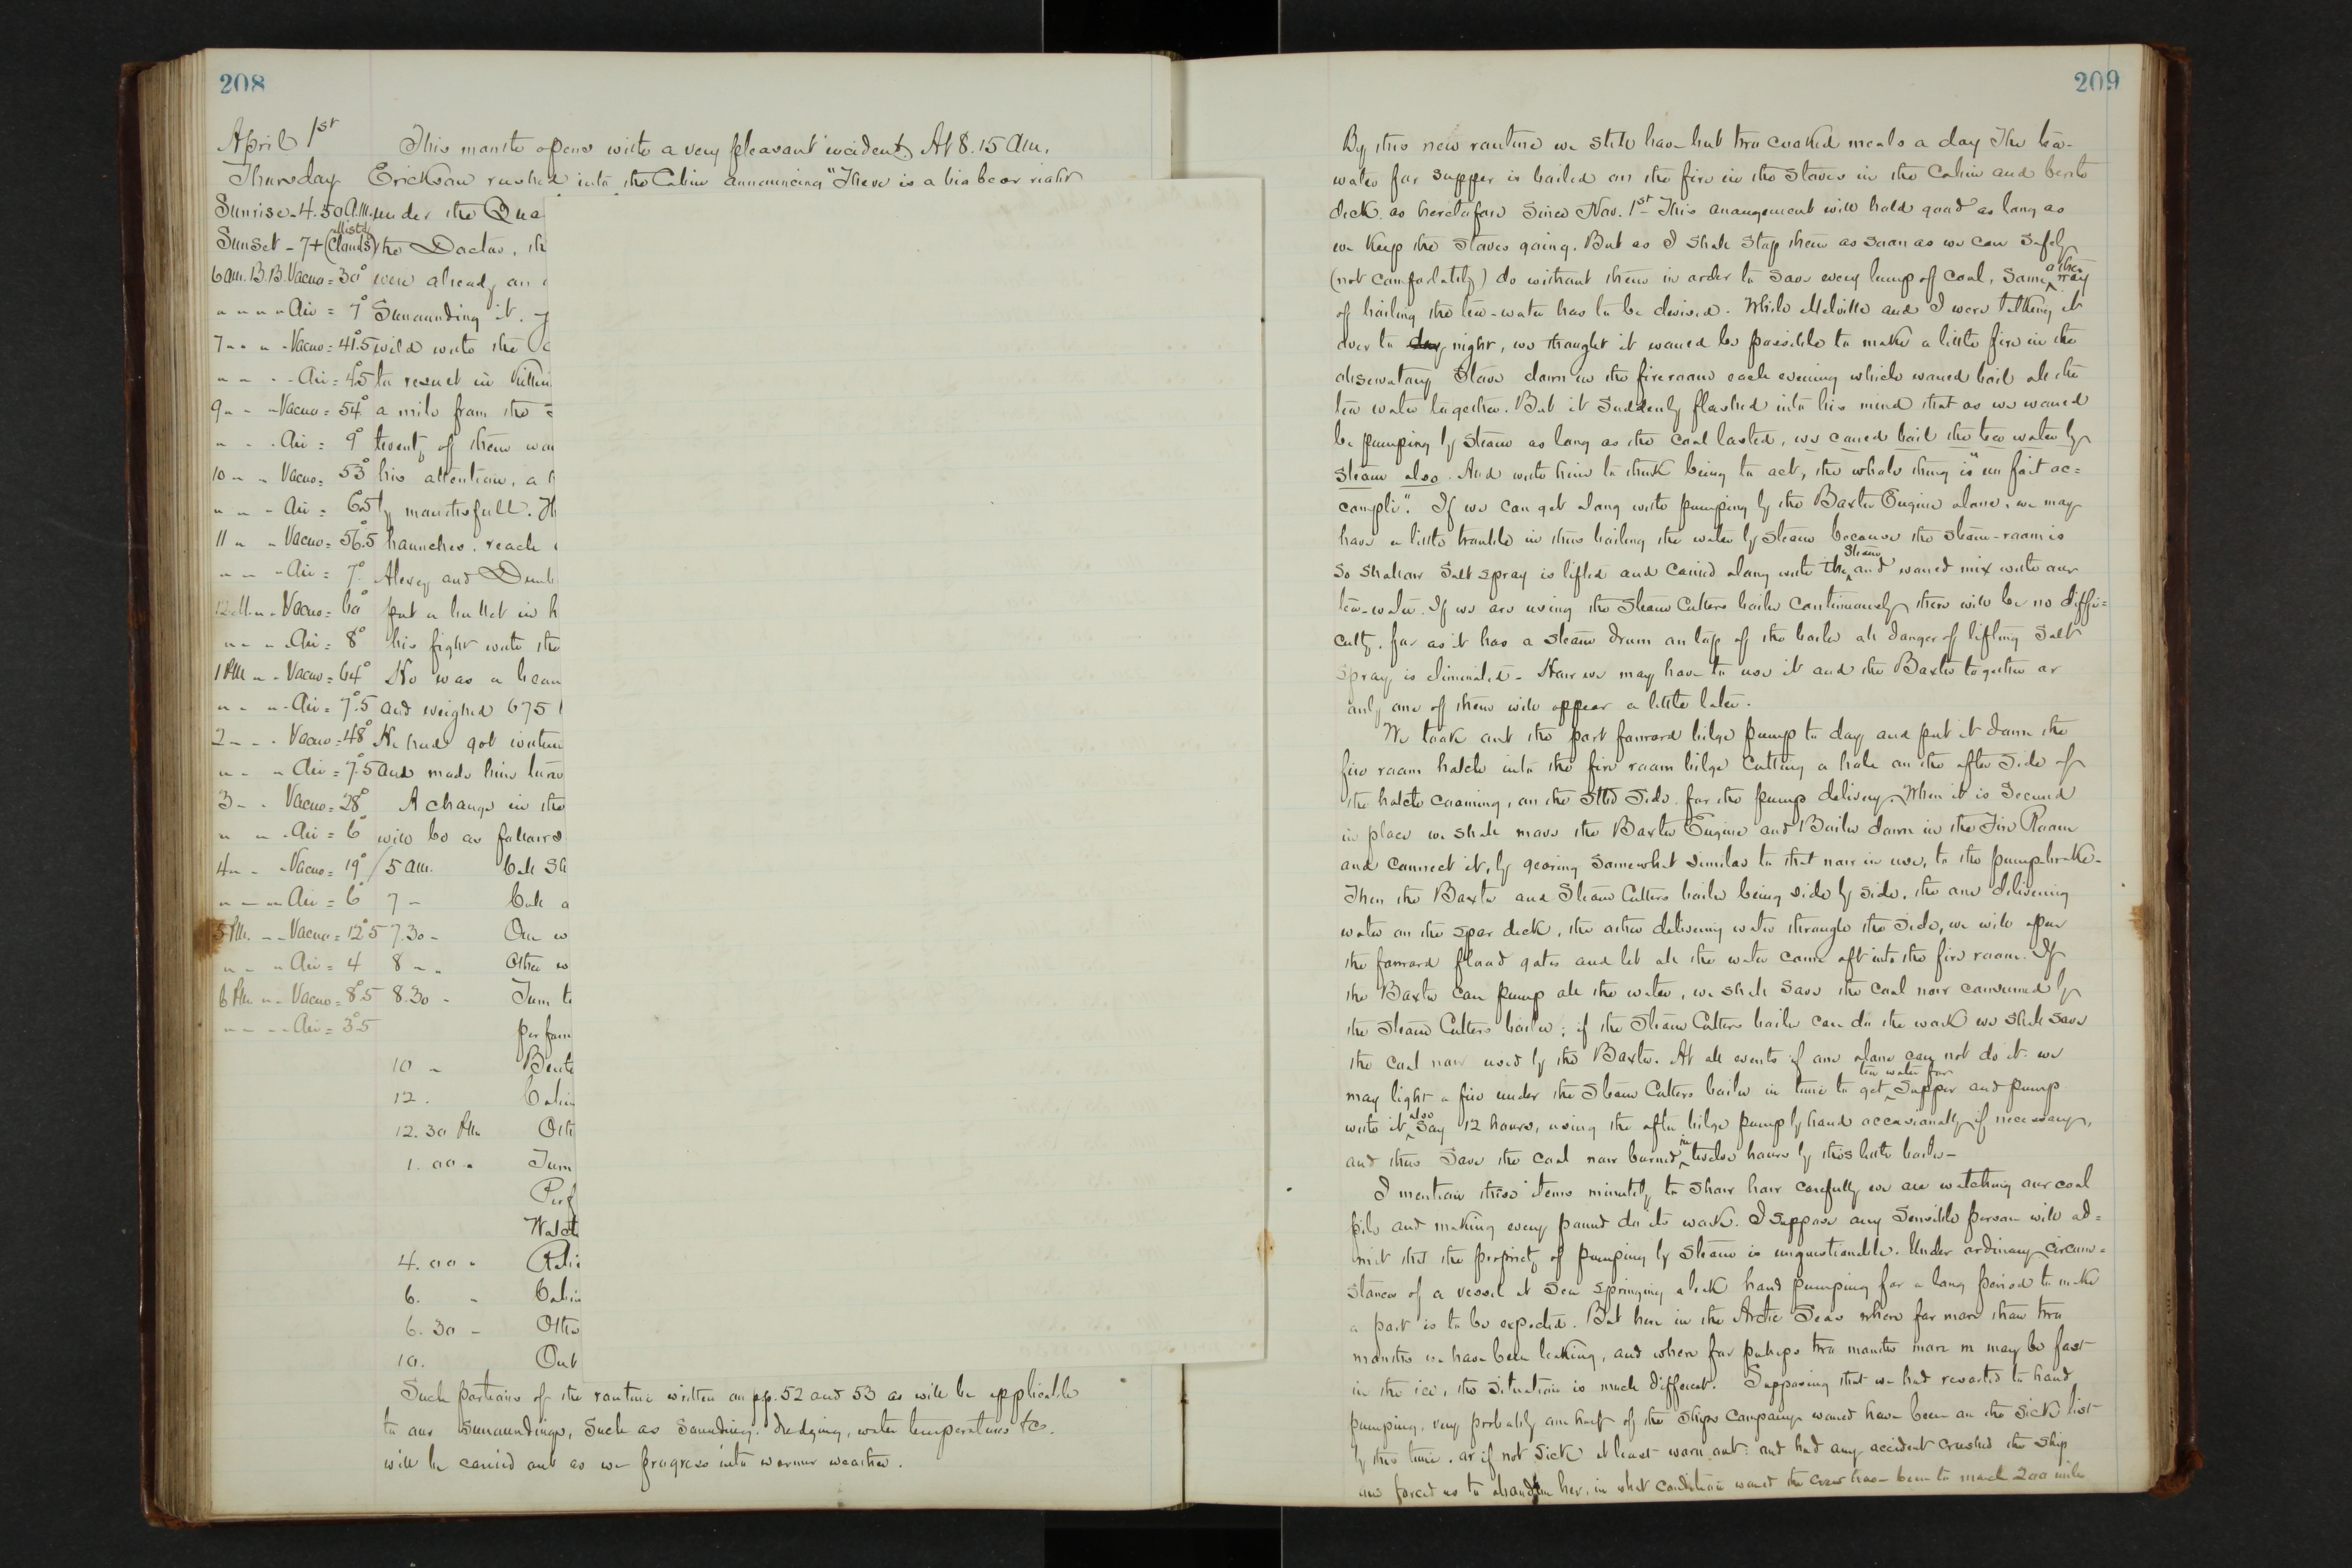 208
April 1st This month opens with a very pleasant incident. At 8.15 a.m.
Thursday Ericksen rushed into the Cabin announcing "There is a big bear right
Sunrise - 4.50 a.m. under the Qua
Misty
Sunset - 7+ (Clouds) the Doctor, th
6 am. B.B. Vacuo = 30° were already on
" " " " Air = 7° Surrounding it.
7 " " " Vacuo = 41.5 wild with the
" " " Air = 4°.5 to result in killin
9 " " " Vacuo = 54° a mile from the
" " " Air = 9° twenty of them wa
10 " " Vacuo = 53° his attention, a
" " " Air = 6°.5 ly mouthsfull. H
11 " " Vacuo = 56°.5 haunches, reach
" " " Air = 7° Alexey and Dunb
12 M. " Vacuo = 60° put a bullet in h
" " " Air = 8° his fight with the
1 PM " " Vacuo = 64° He was a beau
" " " Air = 7°.5 and weighed 675 l
2 " " " Vacuo = 48° He had got within
" " " Air = 7°.5 and made him turn
3 " " Vacuo = 28° A change in the
" " " Air = 6° will be as follows
4 " " " Vacuo = 19° 5 am. Call Sh
" " " Air = 6° 7 " Call a
5 PM. " " Vacuo = 12°.5 7.30 " One w
" " " Air = 4 8 " " Other w
6 PM " " Vacuo = 8°.5 8.30 " Turn to
" " " " Air = 3°.5 perform
10 " Berth
12. Cabin
12.30 PM Oth
1.00 " Turn
Prof
Watch
4.00 "
6. " Cabin
6.30 " Othe
10. Out
Such portions of the routine written on pp. 52 and 53 as will be applicable
to our surroundings, such as Sounding, dredging, water temperatures &c.
will be carried out as we progress into warmer weather.
209
By this new routine we still have but two cooked meals a day The tea-
water for supper is boiled on the fire in the stoves in the Cabin and berth
deck as heretofore since Nov. 1st - This arrangement will hold good as long as
we keep the stoves going. But as I shall stop them as soon as we can safely
(not comfortably) do without them in order to save every lump of coal, some other way
of boiling the tea-water has to be devised. While Melville and I were talking it
over to day night, we thought it would be possible to make a little fire in the
observatory stove down in the fireroom each evening which would boil all the
tea water together. But it suddenly flashed into his mind that as we would
be pumping by steam as long as the coal lasted, we could boil the tea water by
steam also. And with him to think being to act, the whole thing is "un fait ac=
compli". If we can get along with pumping by the Baxter Engine alone, we may
have a little trouble in thus boiling the water by steam because the steam-room is
so shallow salt spray is lifted and carried along with the steam and would mix with our
tea-water. If we are using the Steam Cutters boiler continuously there will be no diffi=
culty, for as it has a steam drum on top of the boiler all danger of lifting salt
spray is eliminated - How we may have to use it and the Baxter together or
only one of them will appear a little later.
We took out the port forward bilge pump to day and put it down the
fire room hatch into the fire room bilge cutting a hole on the after side of
the hatch coaming, on the Stbd side, for the pump delivery. When it is secured
in place we shall move the Baxter Engine and Boiler down in the Fire Room
and connect it, by gearing somewhat similar to that now in use, to the pump-brake.
Then the Baxter and Steam Cutters boiler being side by side, the one delivering
water on the spar deck, the other delivering water through the side, we will open
the forward flood gates and let all the water come aft into the fire room. If
the Baxter can pump all the water, we shall save the coal now consumed by
the Steam Cutters boiler; if the Steam Cutters boiler can do the work we shall save
the coal now used by the Baxter. At all events if one alone can not do it we
may light a fire under the Steam Cutters boiler in time to get tea water for supper and pump
with it also say 12 hours, using the after bilge pump by hand occasionally if necessary,
and thus save the coal now burned in twelve hours by this little boiler -
I mention these items minutely to show how carefully we are watching our coal
pile and making every pound do its work. I suppose any sensible person will ad=
mit that the propriety of pumping by steam is unquestionable. Under ordinary circum=
stances of a vessel at sea springing a leak hand pumping for a long period to make
a port is to be expected. But here in the Arctic Seas where for more than two
months we have been leaking, and where for perhaps two months more m may be fast
in the ice, the situation is much different. Supposing that we had resorted to hand
pumping, very probably one half of the ships company would have been on the sick list
by this time, or if not sick at least worn out: and had any accident crushed the ship
and forced us to abandon her, in what condition would the crew have been to march 200 miles